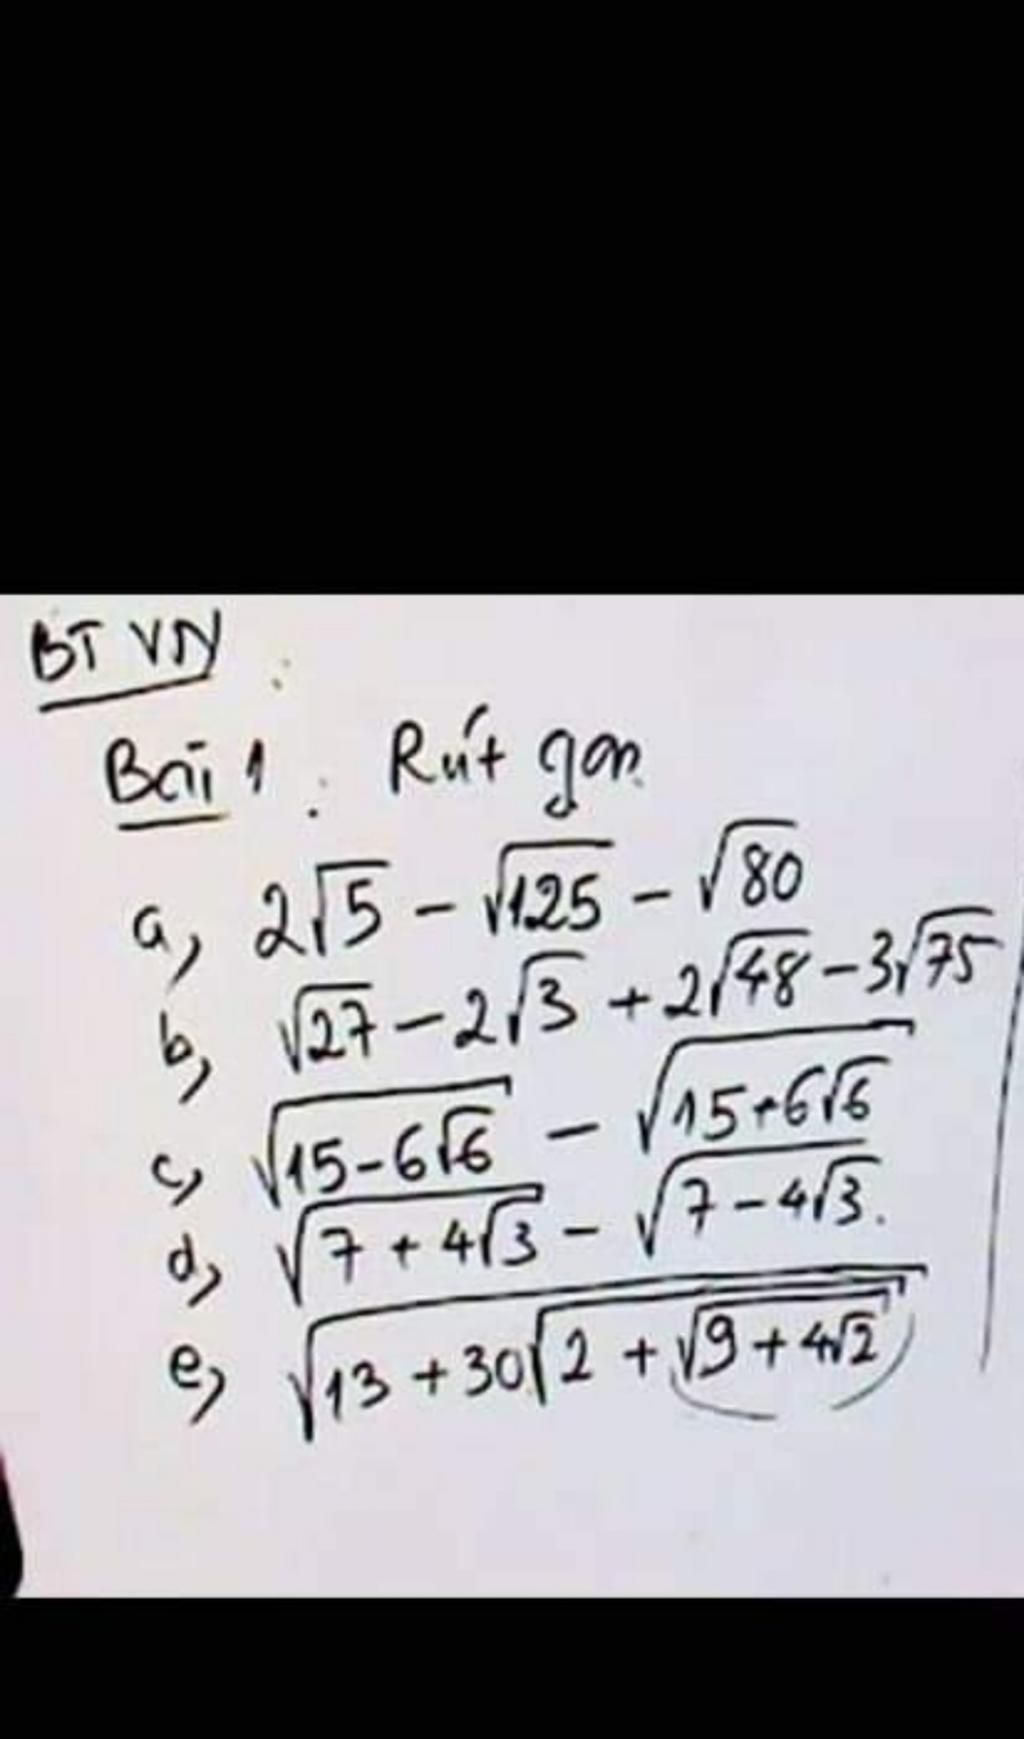 BTVN:
Bài 1: Rút gọn
a, 2√5 - √125 - √80
b, √27 - 2√3 + 2√48 - 3√75
c, √(15-6√6) - √(15+6√6)
d, √(7+4√3) - √(7-4√3).
e, √(13+30√(2+√(9+4√2)))